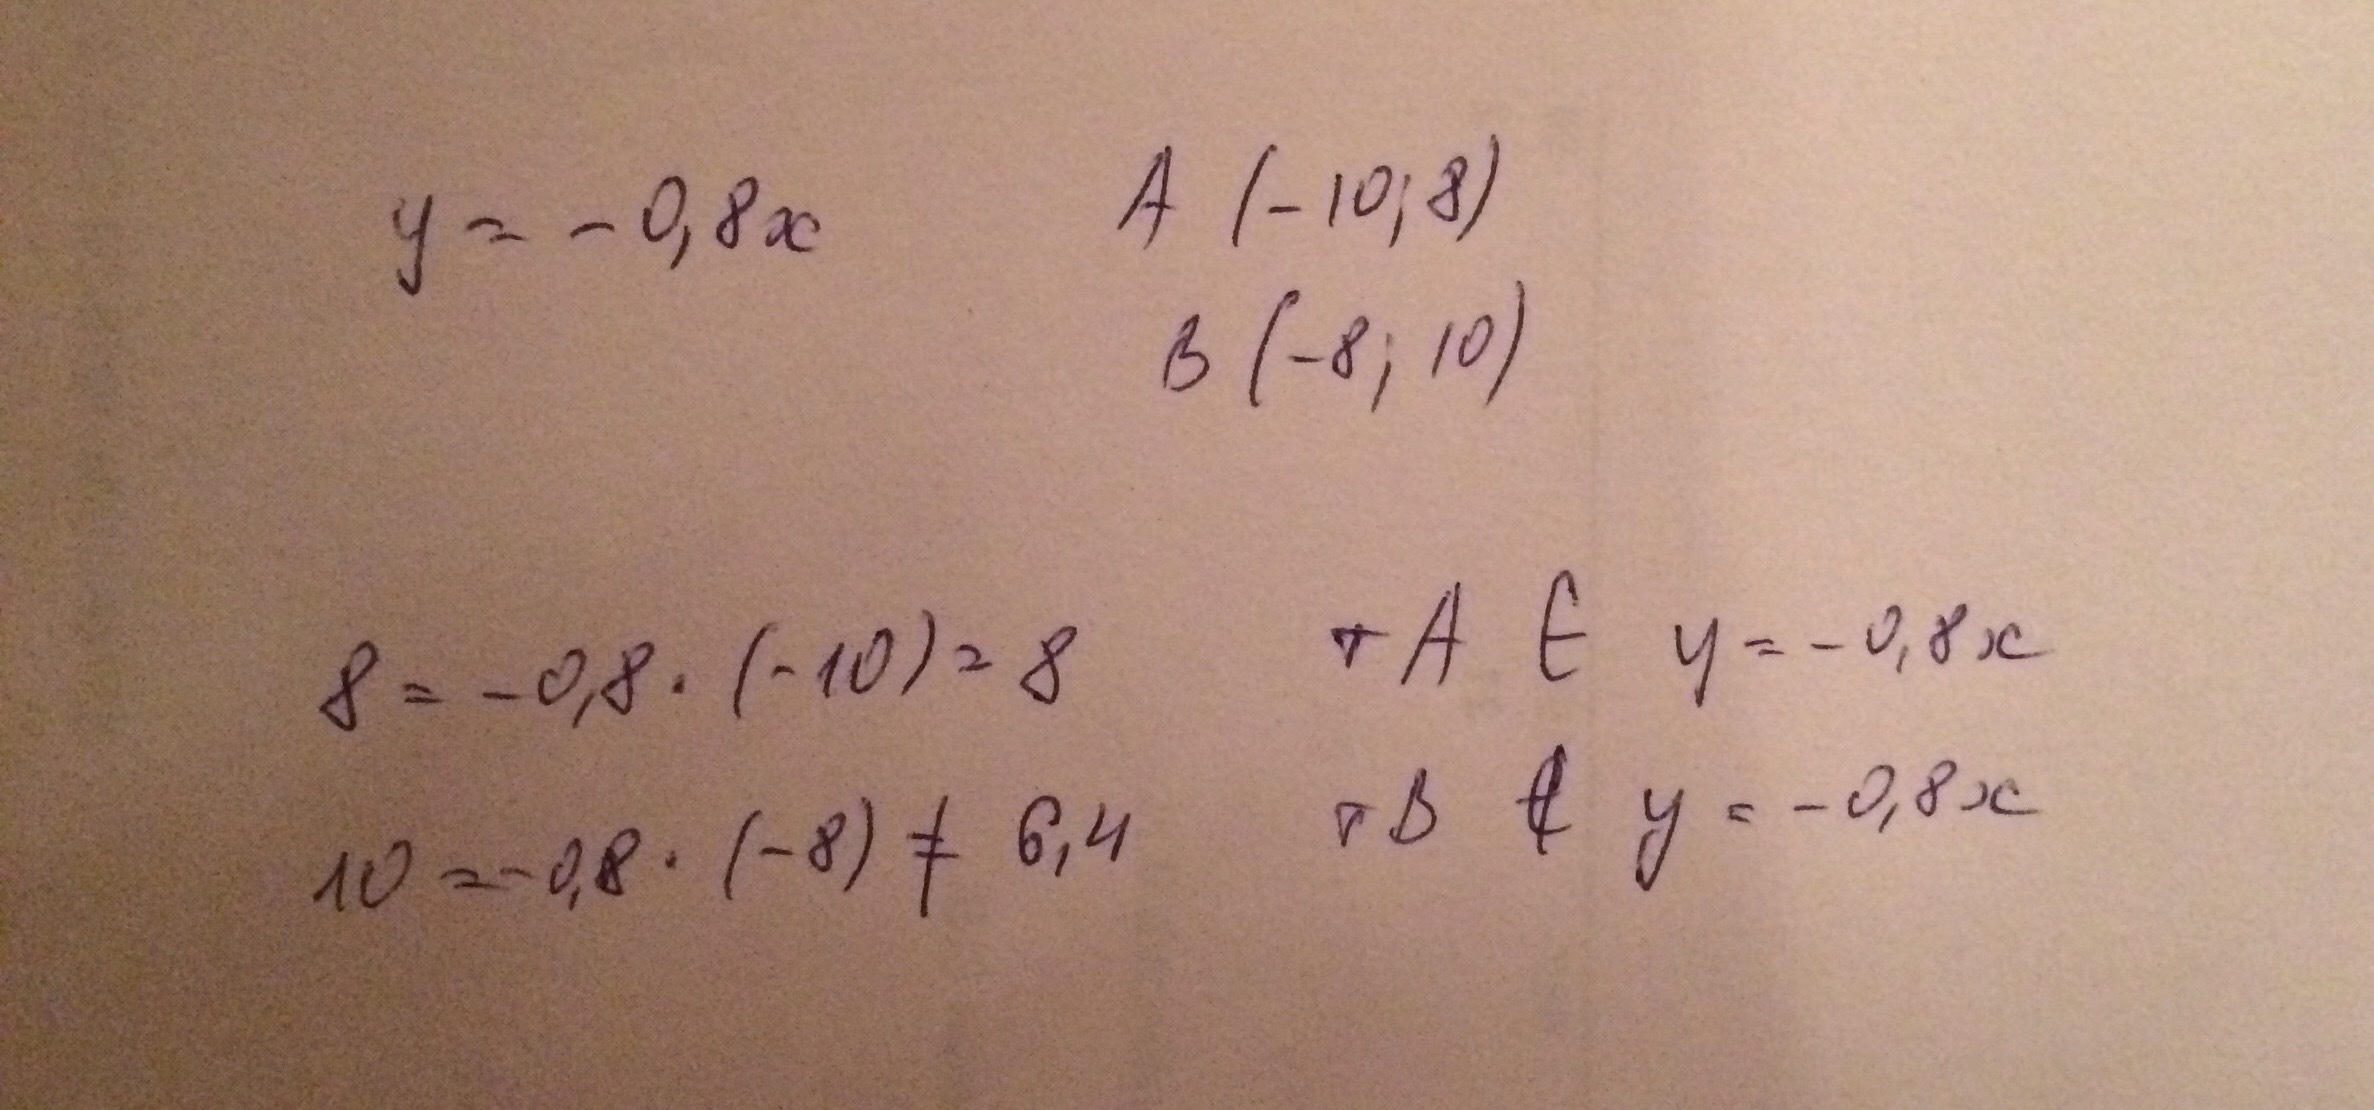 y = -0,8x A (-10; 8)
B (-8; 10)
8 = -0,8 · (-10) = 8 т A ∈ y = -0,8x
10 = -0,8 · (-8) ≠ 6,4 т B ∉ y = -0,8x